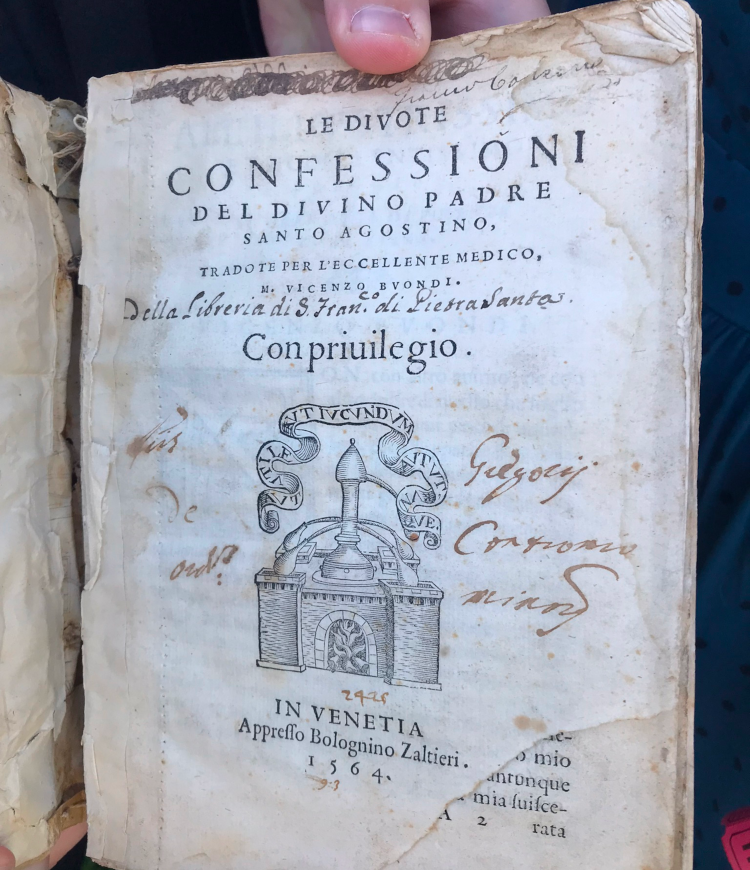 LE DIVOTE
CONFESSIONI
DEL DIVINO PADRE
SANTO AGOSTINO,
TRADOTE PER L'ECCELLENTE MEDICO,
M. VICENZO BVONDI.
Della Libreria di S. Fran.co di Pietra Santa.
Con priuilegio.
AVT VTILE AVT IVCVNDVM AVT VTRVMQVE.
Gregorij
De
ord.
minor
2425
IN VENETIA
Appresso Bolognino Zaltieri.
1564.
93
o mio
antunque
mia suisce-
A 2 rata